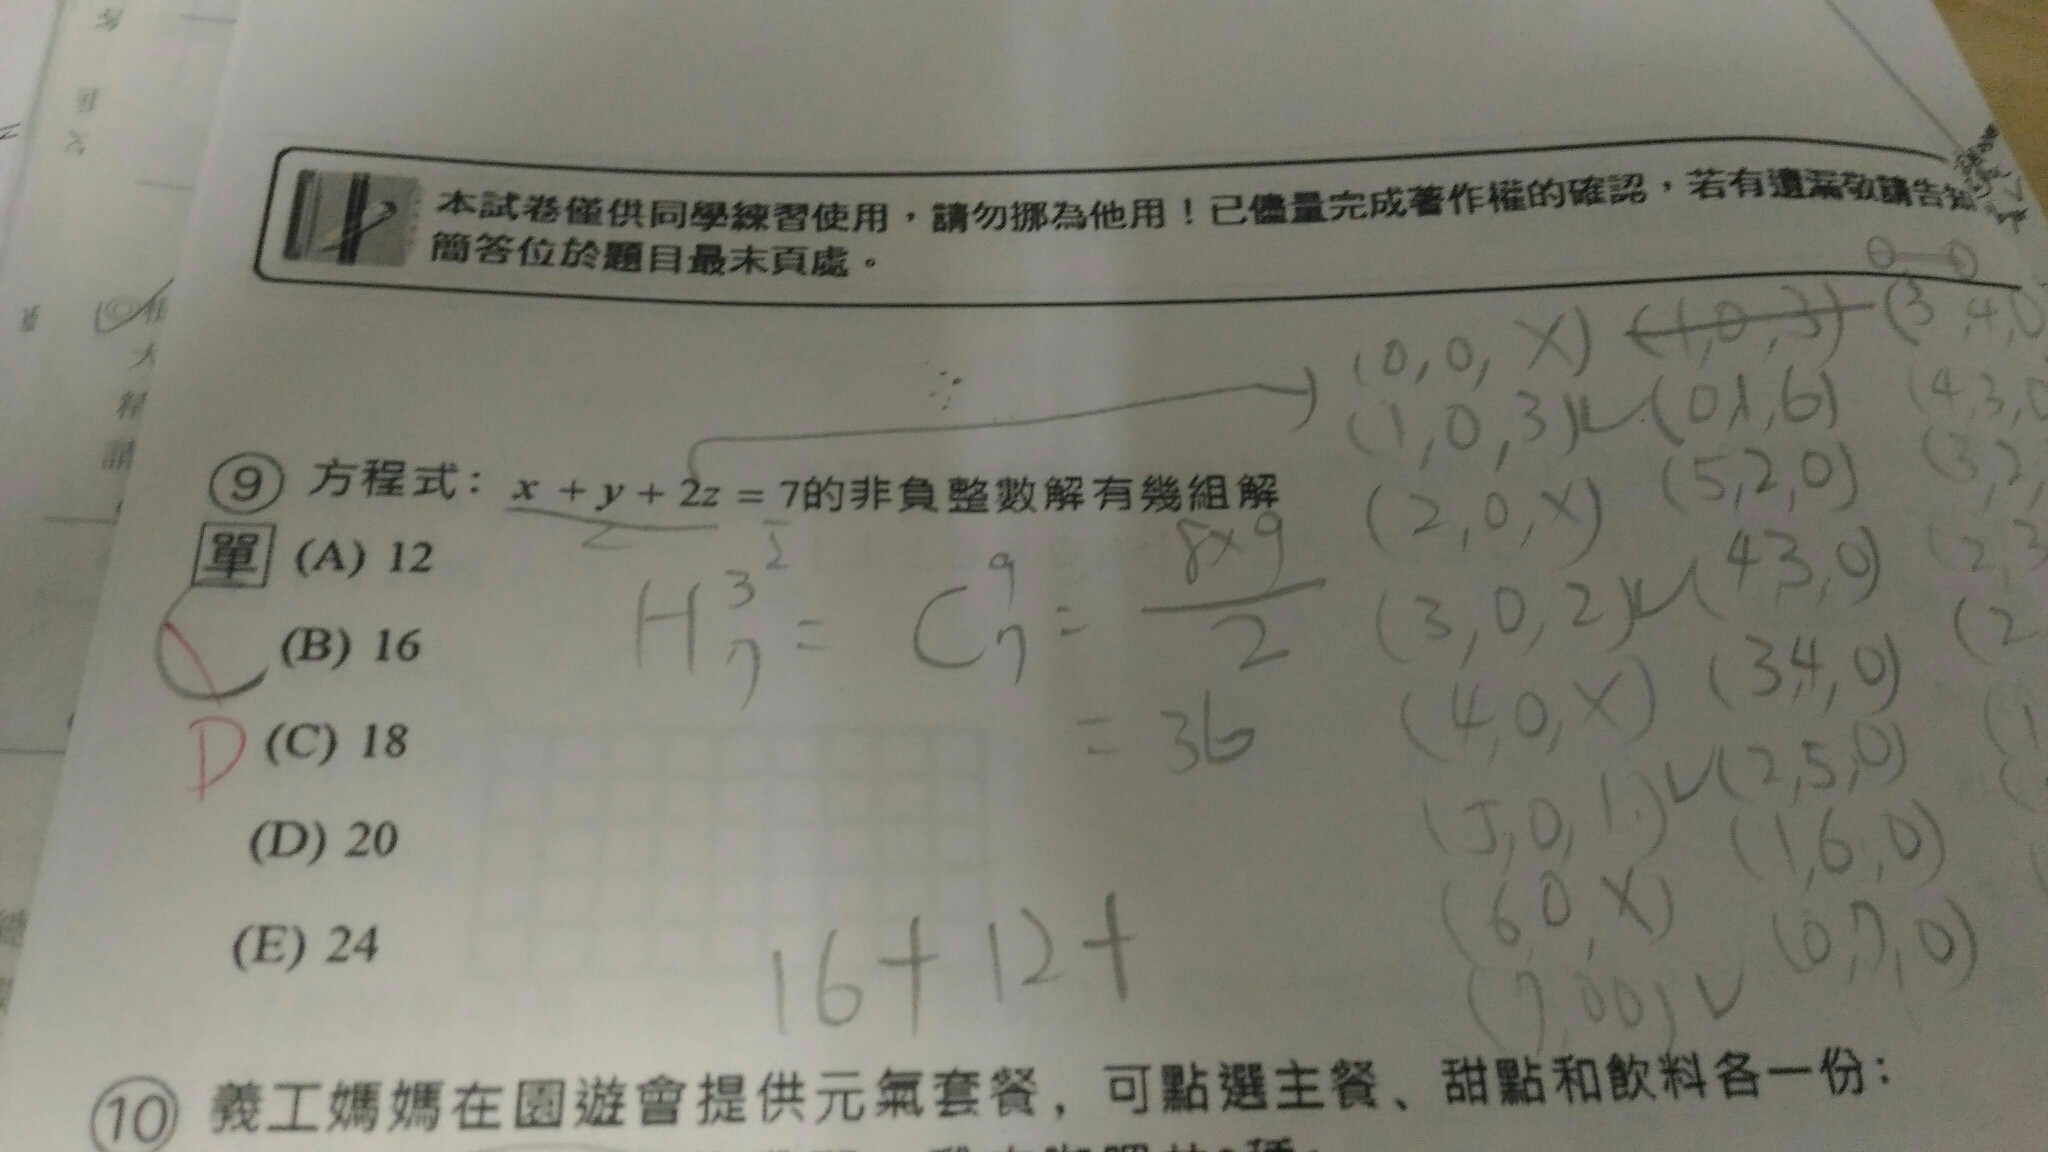 本試卷僅供同學練習使用，請勿挪為他用！已儘量完成著作權的確認，若有遺漏敬請告知
簡答位於題目最末頁處。
(0,0,X) (1,0,3) (3,4,0
(1,0,3)✓ (0,1,6) (4,3,0
⑨ 方程式：x + y + 2z = 7的非負整數解有幾組解
(2,0,X) (5,2,0) (3,2,
單 (A) 12
H³₇ = C⁹₇ = 8×9/2
= 36
(3,0,2)✓ (4,3,0) (2,3
(B) 16
(4,0,X) (3,4,0) (2
D (C) 18
(5,0,1)✓ (2,5,0) (1
(D) 20
(6,0,X) (1,6,0)
(E) 24
16+12+
(7,0,0)✓ (0,7,0)
⑩ 義工媽媽在園遊會提供元氣套餐，可點選主餐、甜點和飲料各一份：